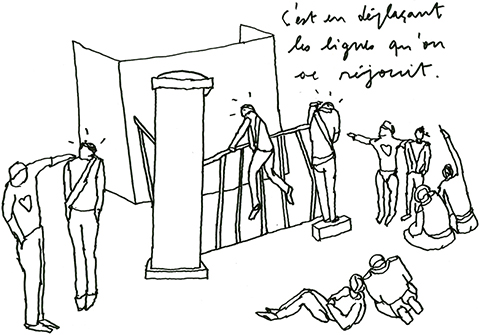 C'est en déplaçant
les lignes qu'on
se réjouit.